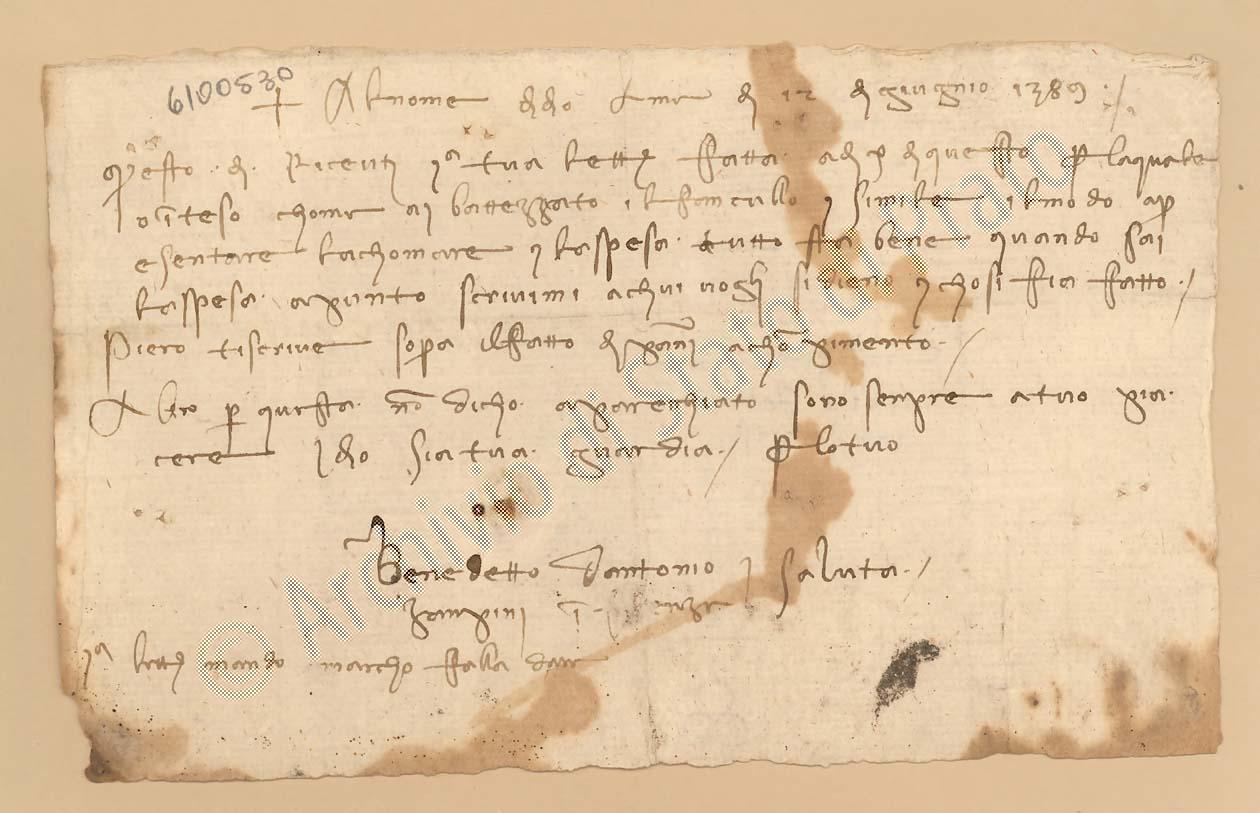 6100530
+ Al nome di dio amen di 12 di giugnio 1389 /
Questo di Ricieuti 1a tua lettera fatta adi x di questo per laquale
o inteso chome ai battezzato il fanciullo e simile il modo apr
esentare la chomare e la spesa tutto sta bene quando sai
la spesa apunto scrivimi achui vogli si dieno e chosi fia fatto /
Piero ti scrive sopra il fatto di panni acho gimento /
Altro per questa non dicho aparechiato sono senpre a tuo pia
cere Idio sia tua guardia / per lo tuo
Benedetto dantonio saluta /
zanpini in
1a lettera mando marcho falla dare
© Archivio di Stato di Prato